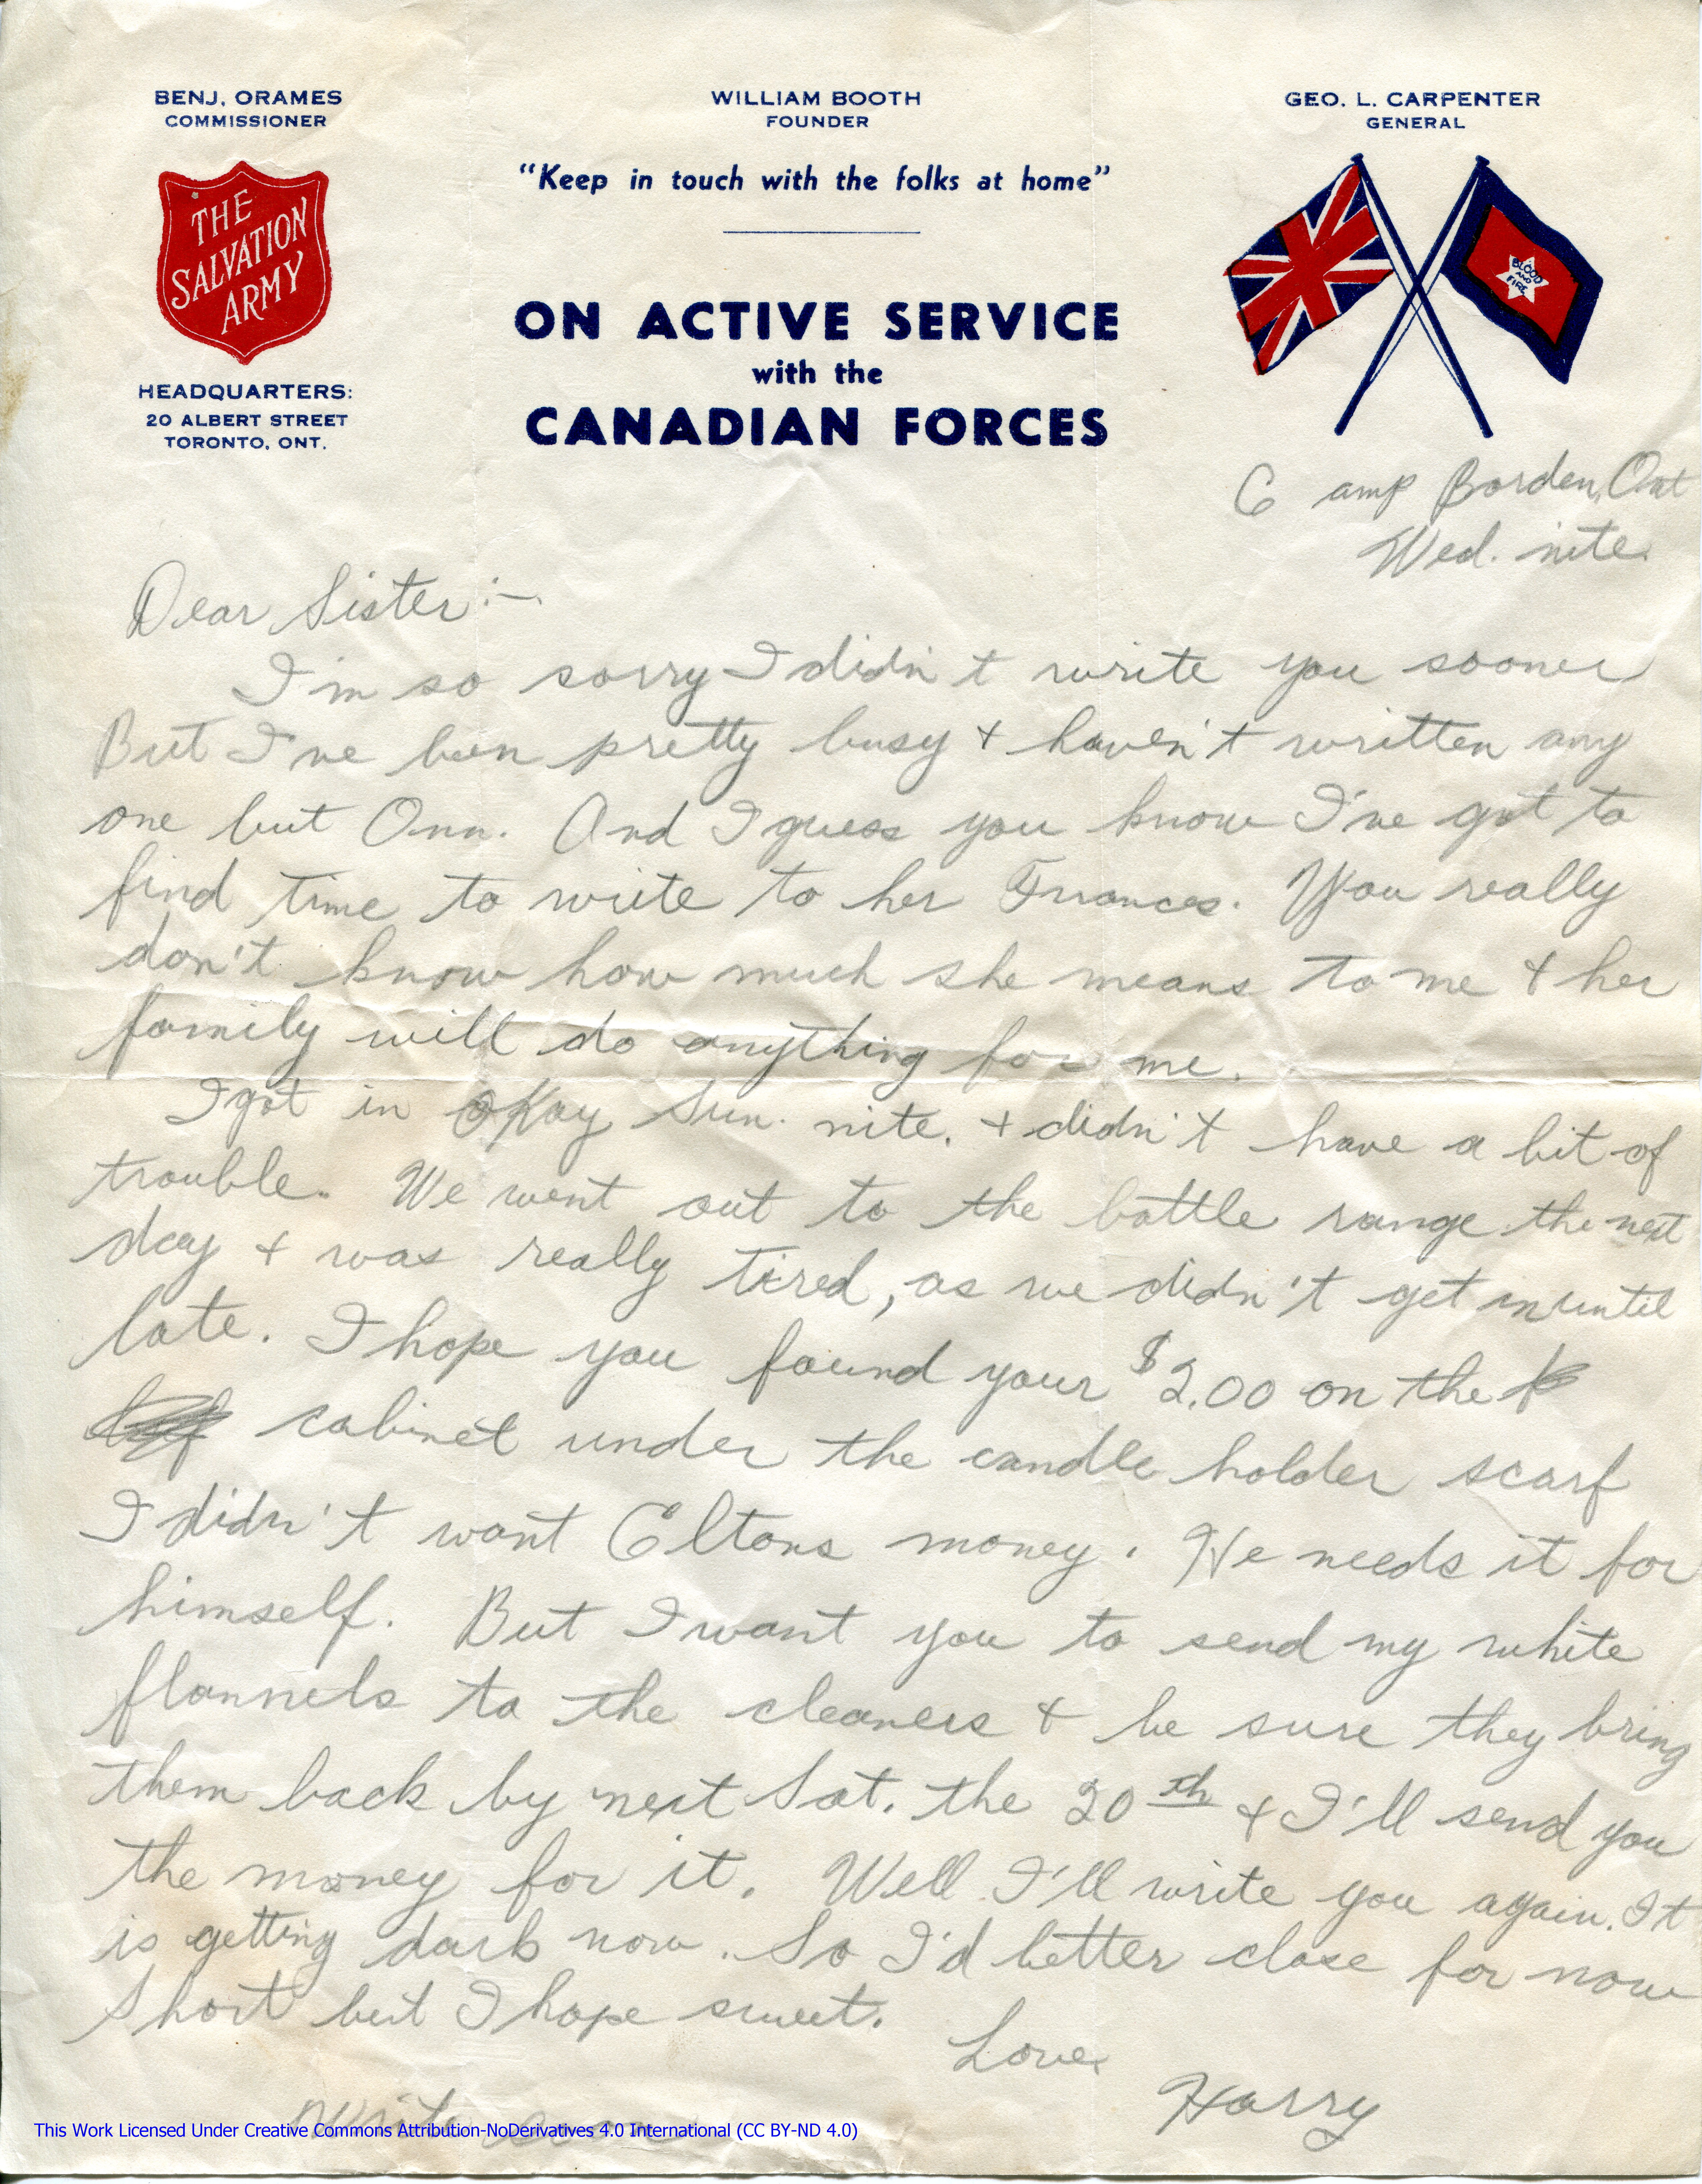 BENJ. ORAMES
COMMISSIONER
WILLIAM BOOTH
FOUNDER
GEO. L. CARPENTER
GENERAL
"Keep in touch with the folks at home"
THE
SALVATION
ARMY
BLOOD
AND
FIRE
ON ACTIVE SERVICE
with the
CANADIAN FORCES
HEADQUARTERS:
20 ALBERT STREET
TORONTO, ONT.
Camp Borden, Ont
Wed. nite.
Dear Sister:-
I'm so sorry I didn't write you sooner
But I've been pretty busy + haven't written any
one but Ann. And I guess you know I've got to
find time to write to her Frances. You really
don't know how much she means to me + her
family will do anything for me.
I got in okay Sun. nite. + didn't have a bit of
trouble. We went out to the battle range the next
day + was really tired, as we didn't get in until
late. I hope you found your $2.00 on the
cabinet under the candle holder scarf
I didn't want Eltons money. He needs it for
himself. But I want you to send my white
flannels to the cleaners + be sure they bring
them back by next Sat. the 20th + I'll send you
the money for it. Well I'll write you again. It
is getting dark now. So I'd better close for now
Short but I hope sweet.
Love,
Harry
Write soon
This Work Licensed Under Creative Commons Attribution-NoDerivatives 4.0 International (CC BY-ND 4.0)